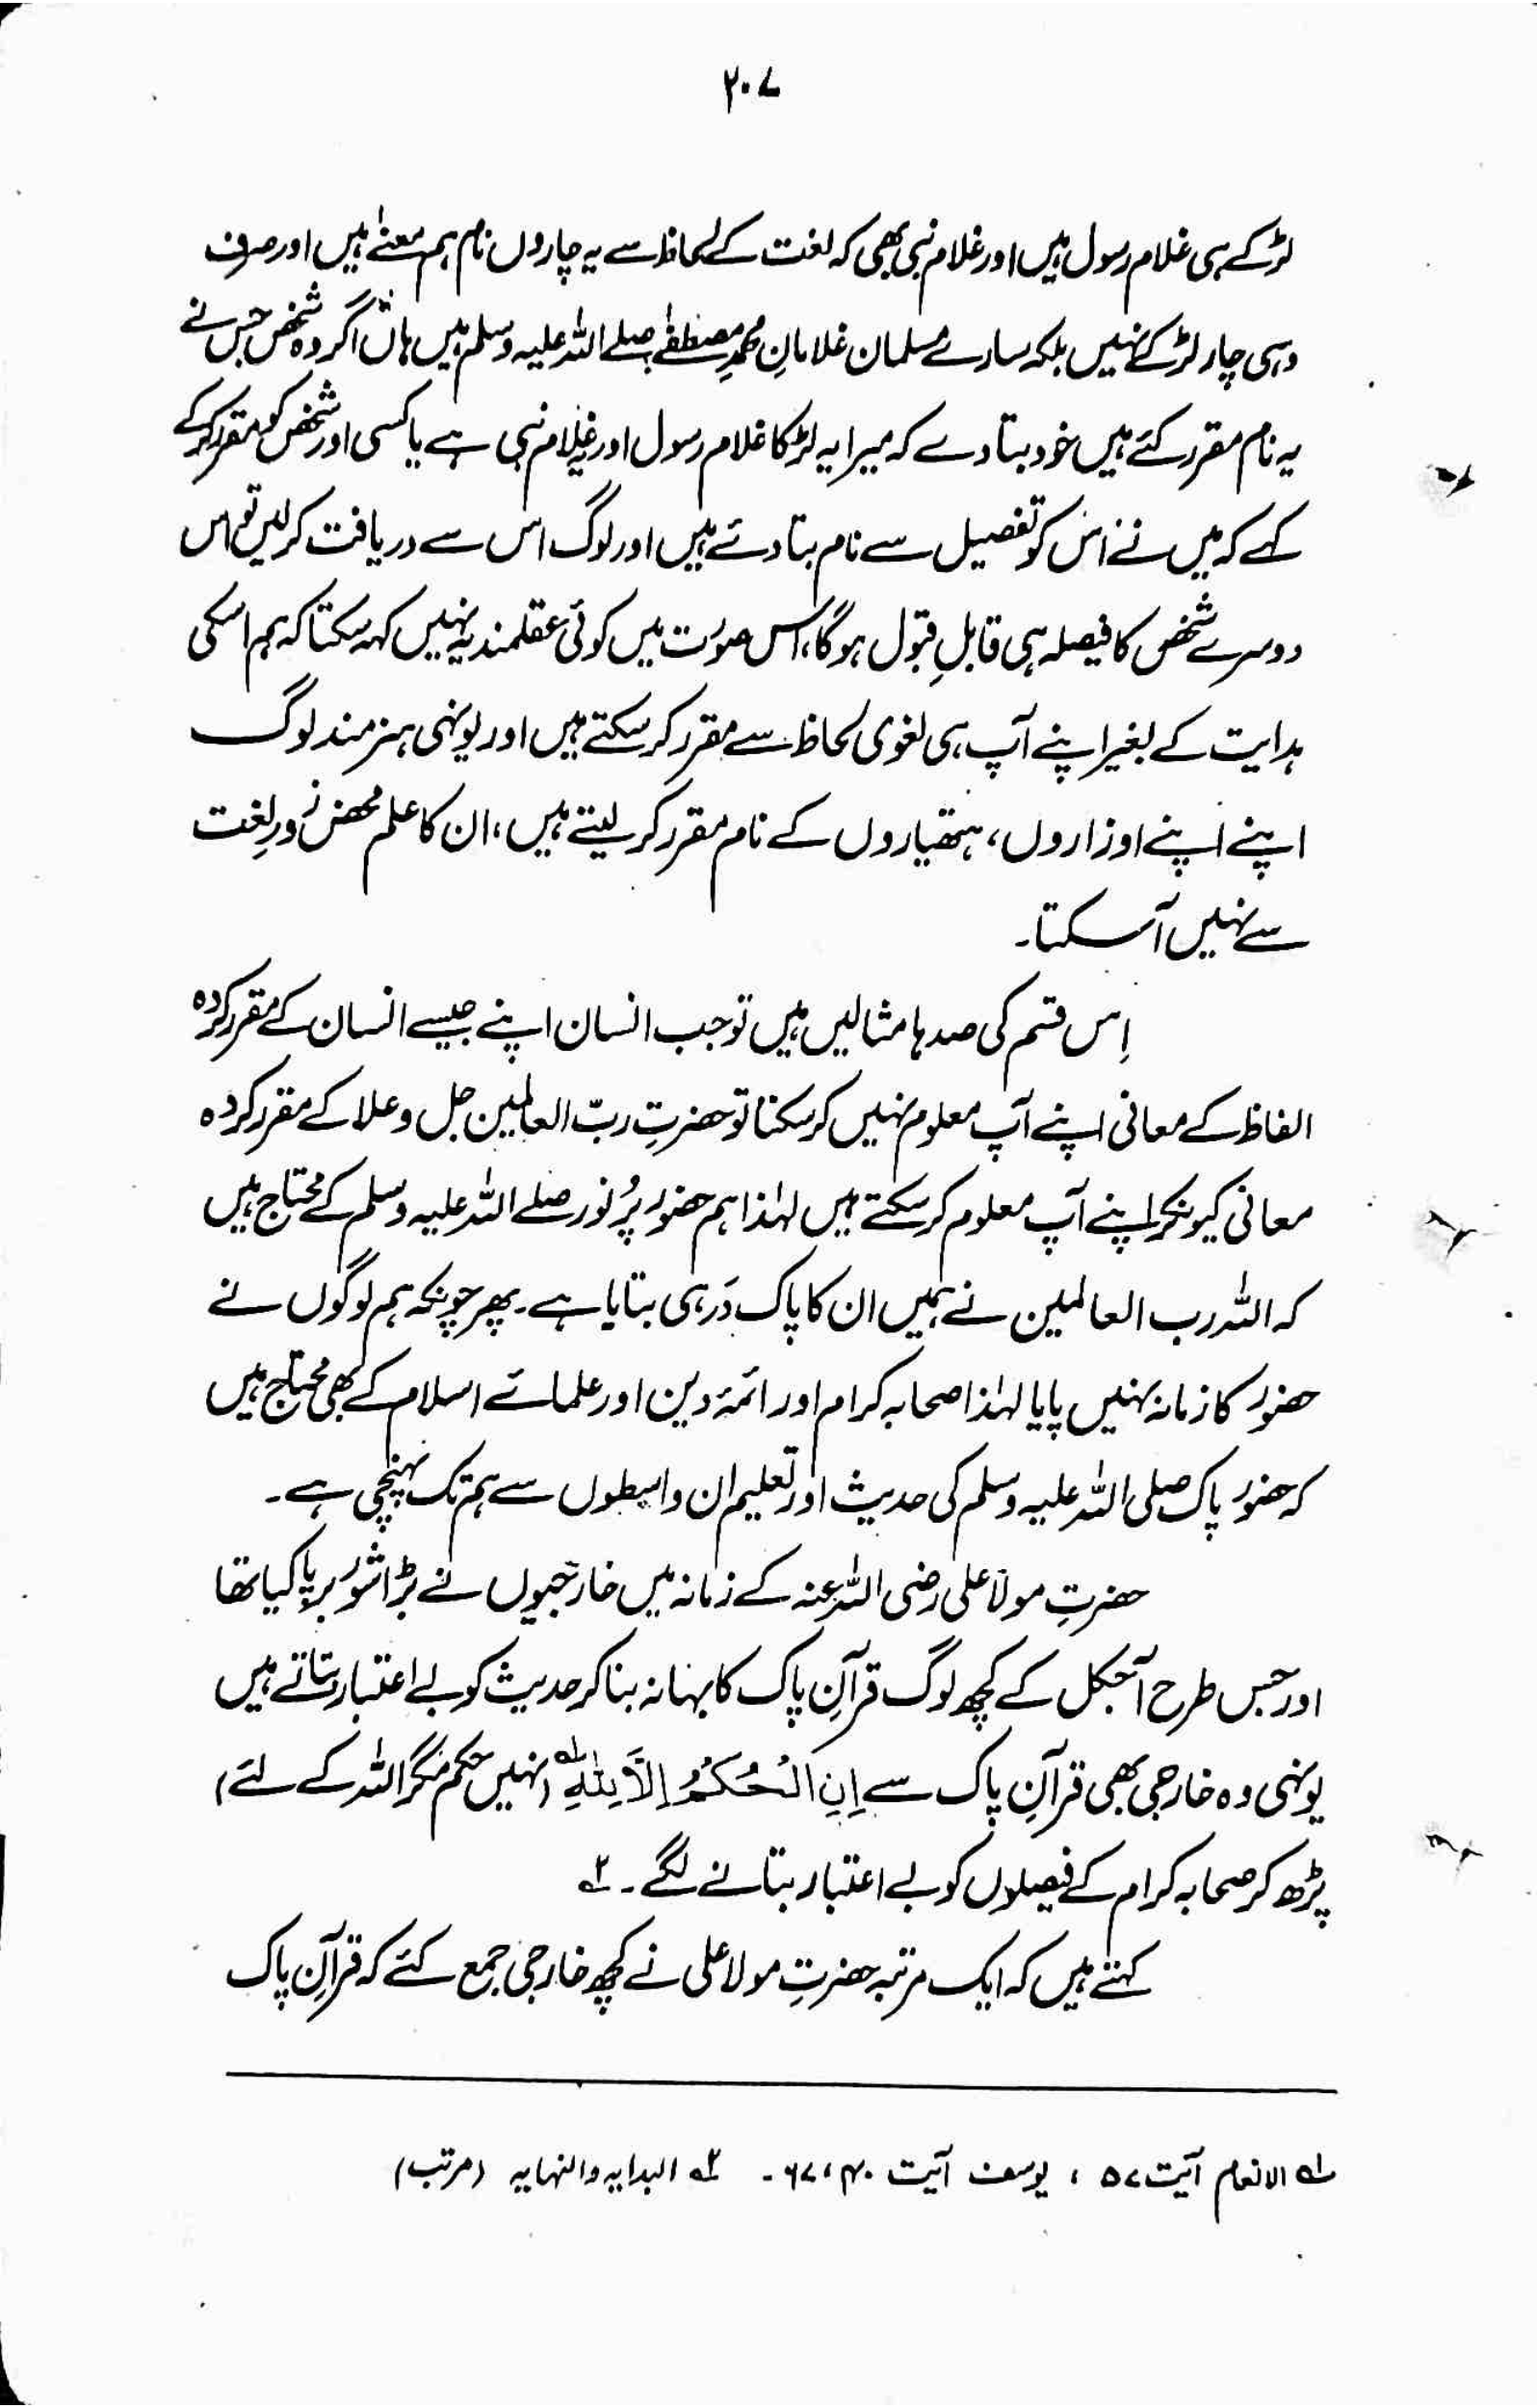 ۲۰۷
لڑکے ہی غلام رسول ہیں اور غلام نبی بھی کہ لغت کے لحاظ سے یہ چاروں نام ہم معنےٰ ہیں اور صرف
وہی چار لڑکے نہیں بلکہ سارے مسلمان غلامانِ محمدِ مصطفےٰ صلے اللہ علیہ وسلم ہیں ہاں اگر وہ شخص جس نے
یہ نام مقرر کئے ہیں خود بتا دے کہ میرا یہ لڑکا غلام رسول اور یہ غلام نبی ہے یا کسی اور شخص کو مقرر کرکے
کہے کہ میں نے اس کو تفصیل سے نام بتا دئے ہیں اور لوگ اس سے دریافت کر لیں تو اس
دوسرے شخص کا فیصلہ ہی قابلِ قبول ہوگا، اس صورت میں کوئی عقلمند یہ نہیں کہہ سکتا کہ ہم اسکی
ہدایت کے بغیر اپنے آپ ہی لغوی لحاظ سے مقرر کر سکتے ہیں اور یونہی ہنر مند لوگ
اپنے اپنے اوزاروں، ہتھیاروں کے نام مقرر کر لیتے ہیں، ان کا علم محض زورِ لغت
سے نہیں آ سکتا۔
اِس قسم کی صدہا مثالیں ہیں تو جب انسان اپنے جیسے انسان کے مقرر کردہ
الفاظ کے معانی اپنے آپ معلوم نہیں کر سکتا تو حضرتِ ربّ العالمین جل و علا کے مقرر کردہ
معانی کیونکر اپنے آپ معلوم کر سکتے ہیں لہٰذا ہم حضور پُر نور صلے اللہ علیہ وسلم کے محتاج ہیں
کہ اللہ رب العالمین نے ہمیں ان کا پاک دَر ہی بتایا ہے۔ پھر چونکہ ہم لوگوں نے
حضور کا زمانہ نہیں پایا لہٰذا صحابہ کرام اور ائمۂ دین اور علمائے اسلام کے بھی محتاج ہیں
کہ حضور پاک صلی اللہ علیہ وسلم کی حدیث اور تعلیم ان واسطوں سے ہم تک پہنچی ہے۔
حضرتِ مولا علی رضی اللہ عنہ کے زمانہ میں خارجیوں نے بڑا شور برپا کیا تھا
اور جس طرح آجکل کے کچھ لوگ قرآنِ پاک کا بہانہ بنا کر حدیث کو بے اعتبار بتاتے ہیں
یونہی وہ خارجی بھی قرآنِ پاک سے اِنِ الْحُكْمُ اِلَّا لِلّٰهِ ۱ (نہیں حکم مگر اللہ کے لئے)
پڑھ کر صحابہ کرام کے فیصلوں کو بے اعتبار بتانے لگے۔ ۲
کہتے ہیں کہ ایک مرتبہ حضرتِ مولا علی نے کچھ خارجی جمع کئے کہ قرآنِ پاک
۱ الانعام آیت ۵۷ ، یوسف آیت ۴۰ ، ۶۷۔ ۲ البدایہ والنہایہ (مرتب)